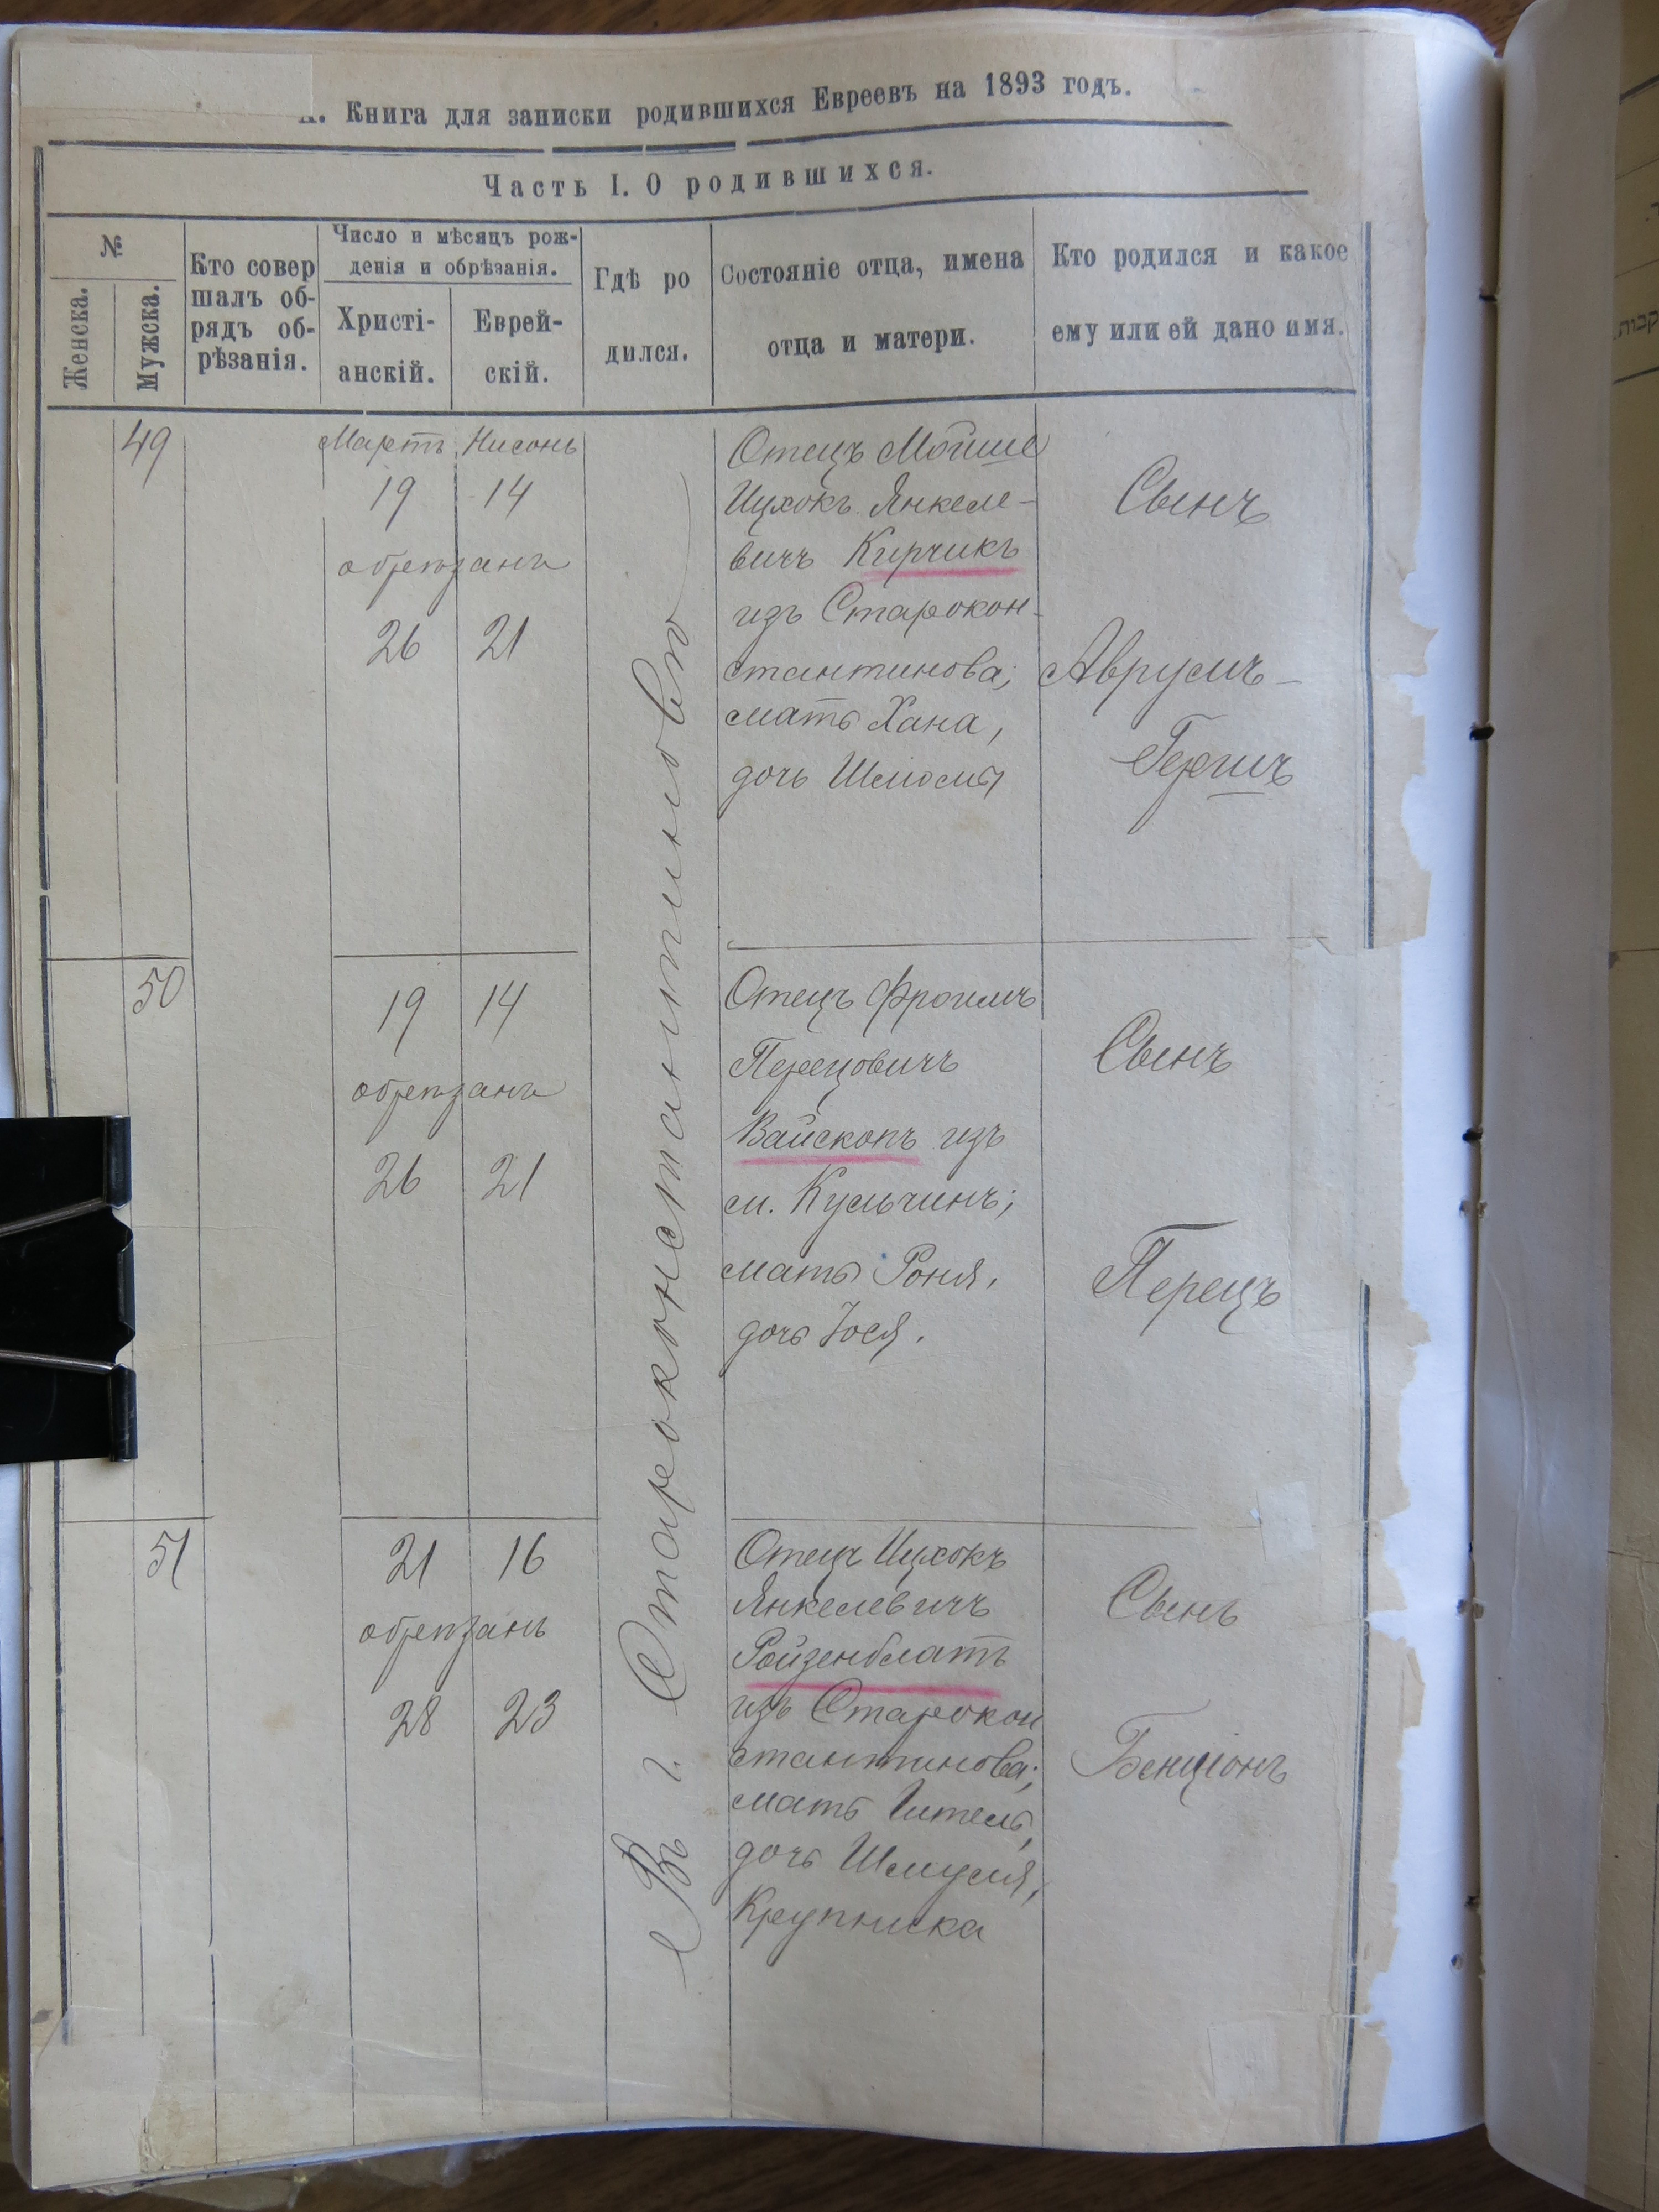 Книга для записки родившихся Евреевъ на 1893 годъ.
Часть I. О родившихся.
№
Женска.
Мужска.
Кто совер
шалъ об-
рядъ об-
рѣзанія.
Число и мѣсяцъ рож-
денія и обрѣзанія.
Христі-
анскій.
Еврей-
скій.
Гдѣ ро
дился.
Состояніе отца, имена
отца и матери.
Кто родился и какое
ему или ей дано имя.
49
Мартъ Нисонь
19 14
обрѣзанъ
26 21
Отецъ Мойше
Ицхокъ Янкеле-
вичъ Кирчикъ
изъ Старокон-
стантинова;
мать Хана,
дочь Шліомы
Сынъ
Аврумъ-
Гершъ
Въ г. Староконстантиновѣ
50
19 14
обрѣзанъ
26 21
Отецъ Фроимъ
Перецовичъ
Вайскопъ изъ
м. Кульчинъ;
мать Роня,
дочь Іося.
Сынъ
Перецъ
51
21 16
обрѣзанъ
28 23
Отецъ Ицхокъ
Янкелевичъ
Ройзенблатъ
изъ Старокон
стантинова;
мать Гитель,
дочь Шмуля,
Крупника
Сынъ
Бенціонъ